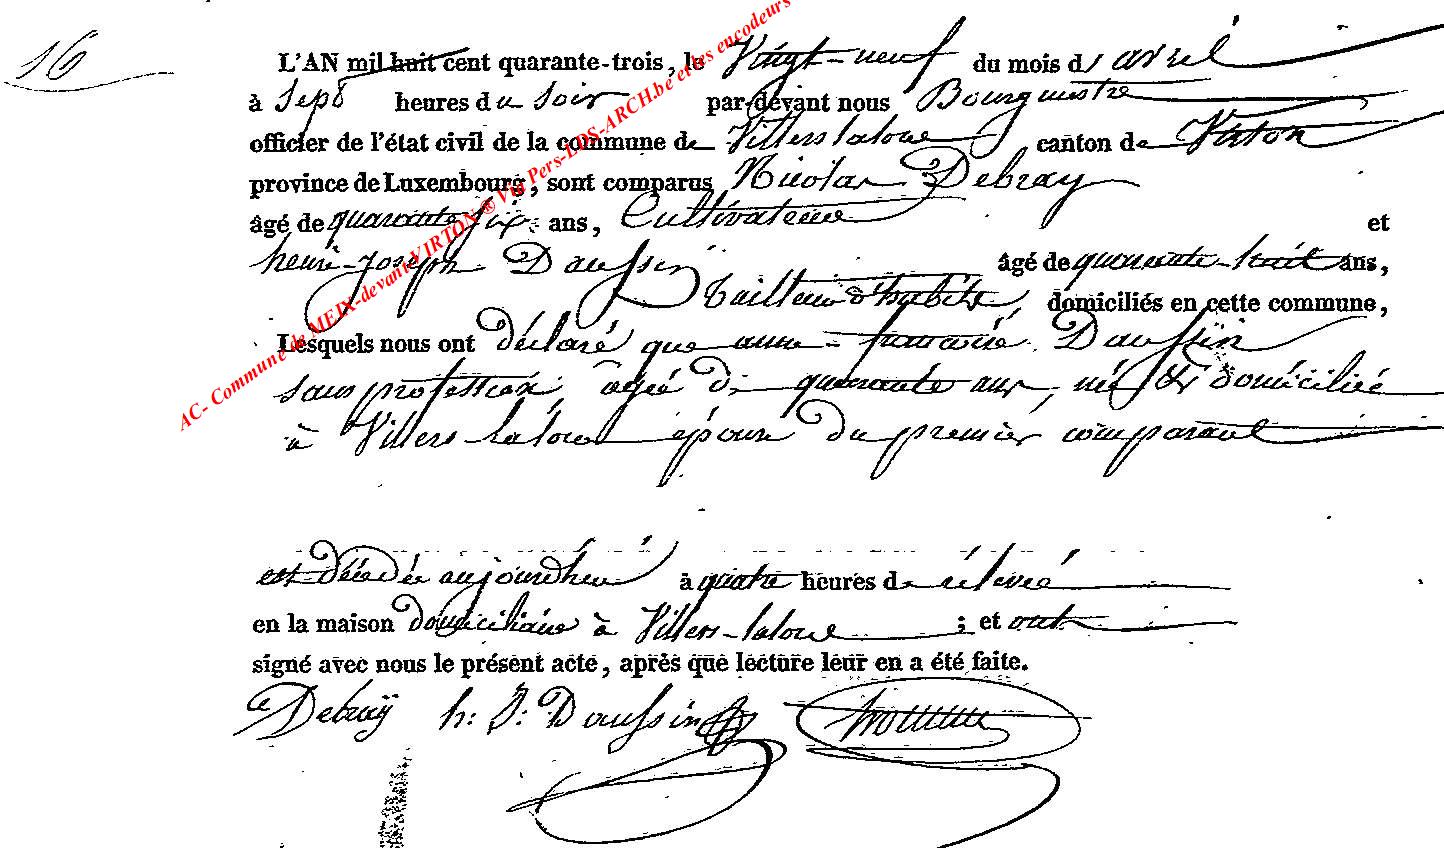 16
L'AN mil huit cent quarante-trois, le Vingt-neuf du mois d'avril
à Sept heures du Soir par-devant nous Bourgmestre
officier de l'état civil de la commune de Villers laloue canton de Virton
province de Luxembourg, sont comparus Nicolas Debray
âgé de quarante six ans, Cultivateur et
henri-Joseph Daussin âgé de quarante-huit ans,
tailleur d'habits domiciliés en cette commune,
Lesquels nous ont déclaré que anne Daussin
sans profession âgée de quarante ans, née et domiciliée
à Villers-laloue épouse du premier comparant
est décédée aujourd'hui à quatre heures de relevé
en la maison domiciliaire à Villers-laloue ; et ont
signé avec nous le présent acte, après que lecture leur en a été faite.
Debraÿ h: J: Daussin
AC- Commune de MEIX-devant-VIRTON ® Via Pers-LDS-ARCH.be et les encodeurs